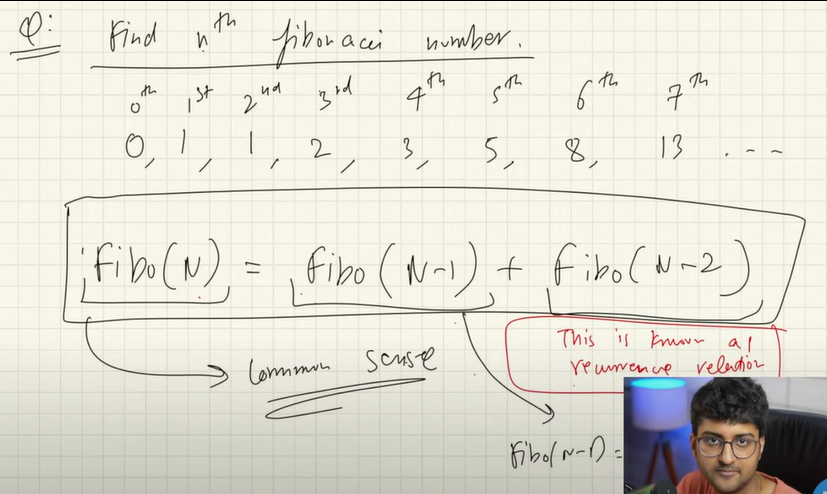 Q: Find nth fibonacci number.
0th 1st 2nd 3rd 4th 5th 6th 7th
0, 1, 1, 2, 3, 5, 8, 13 . - - -
Fibo(N) = Fibo(N-1) + Fibo(N-2)
This is known as
recurrence relation
Common sense
Fibo(N-1) =